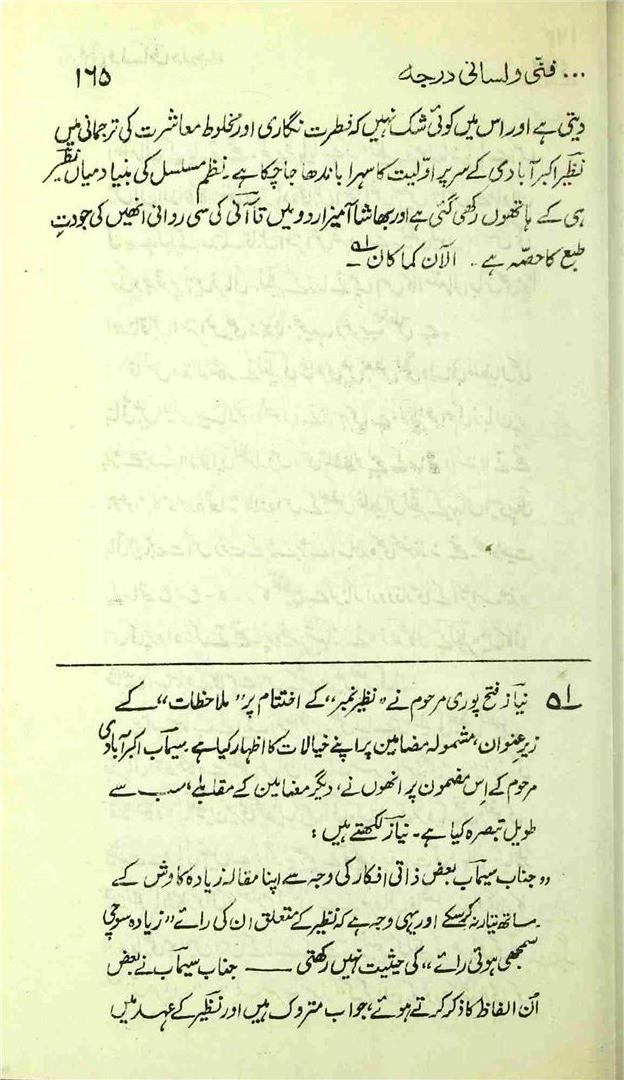 ... فنّی و لسانی درجہ ۱۶۵
دیتی ہے اور اس میں کوئی شک نہیں کہ فطرت نگاری اور مخلوط معاشرت کی ترجمانی میں
نظیرؔ اکبرآبادی کے سر پر اوّلیت کا سہرا باندھا جا چکا ہے۔ نظم مسلسل کی بنیاد میاں نظیرؔ
ہی کے ہاتھوں رکھی گئی ہے اور بھاشا آمیز اردو میں تاآنی کی سی روانی انھیں کی جودتِ
طبع کا حصّہ ہے۔ الآن کما کان ۵۱؎
۵۱؎ نیاز فتح پوری مرحوم نے "نظیر نمبر" کے اختتام پر "ملاحظات" کے
زیرِ عنوان، مشمولہ مضامین پر اپنے خیالات کا اظہار کیا ہے۔ سیمابؔ اکبرآبادی
مرحوم کے اِس مضمون پر انھوں نے، دیگر مضامین کے مقابلے، سب سے
طویل تبصرہ کیا ہے۔ نیازؔ لکھتے ہیں:
"جناب سیمابؔ بعض ذاتی افکار کی وجہ سے اپنا مقالہ زیادہ کاوش کے
ساتھ تیار نہ کر سکے اور یہی وجہ ہے کہ نظیرؔ کے متعلق ان کی رائے "زیادہ سوچی
سمجھی ہوئی رائے" کی حیثیت نہیں رکھتی —— جناب سیمابؔ نے بعض
اُن الفاظ کا ذکر کرتے ہوئے، جو اب متروک ہیں اور نظیرؔ کے عہد میں